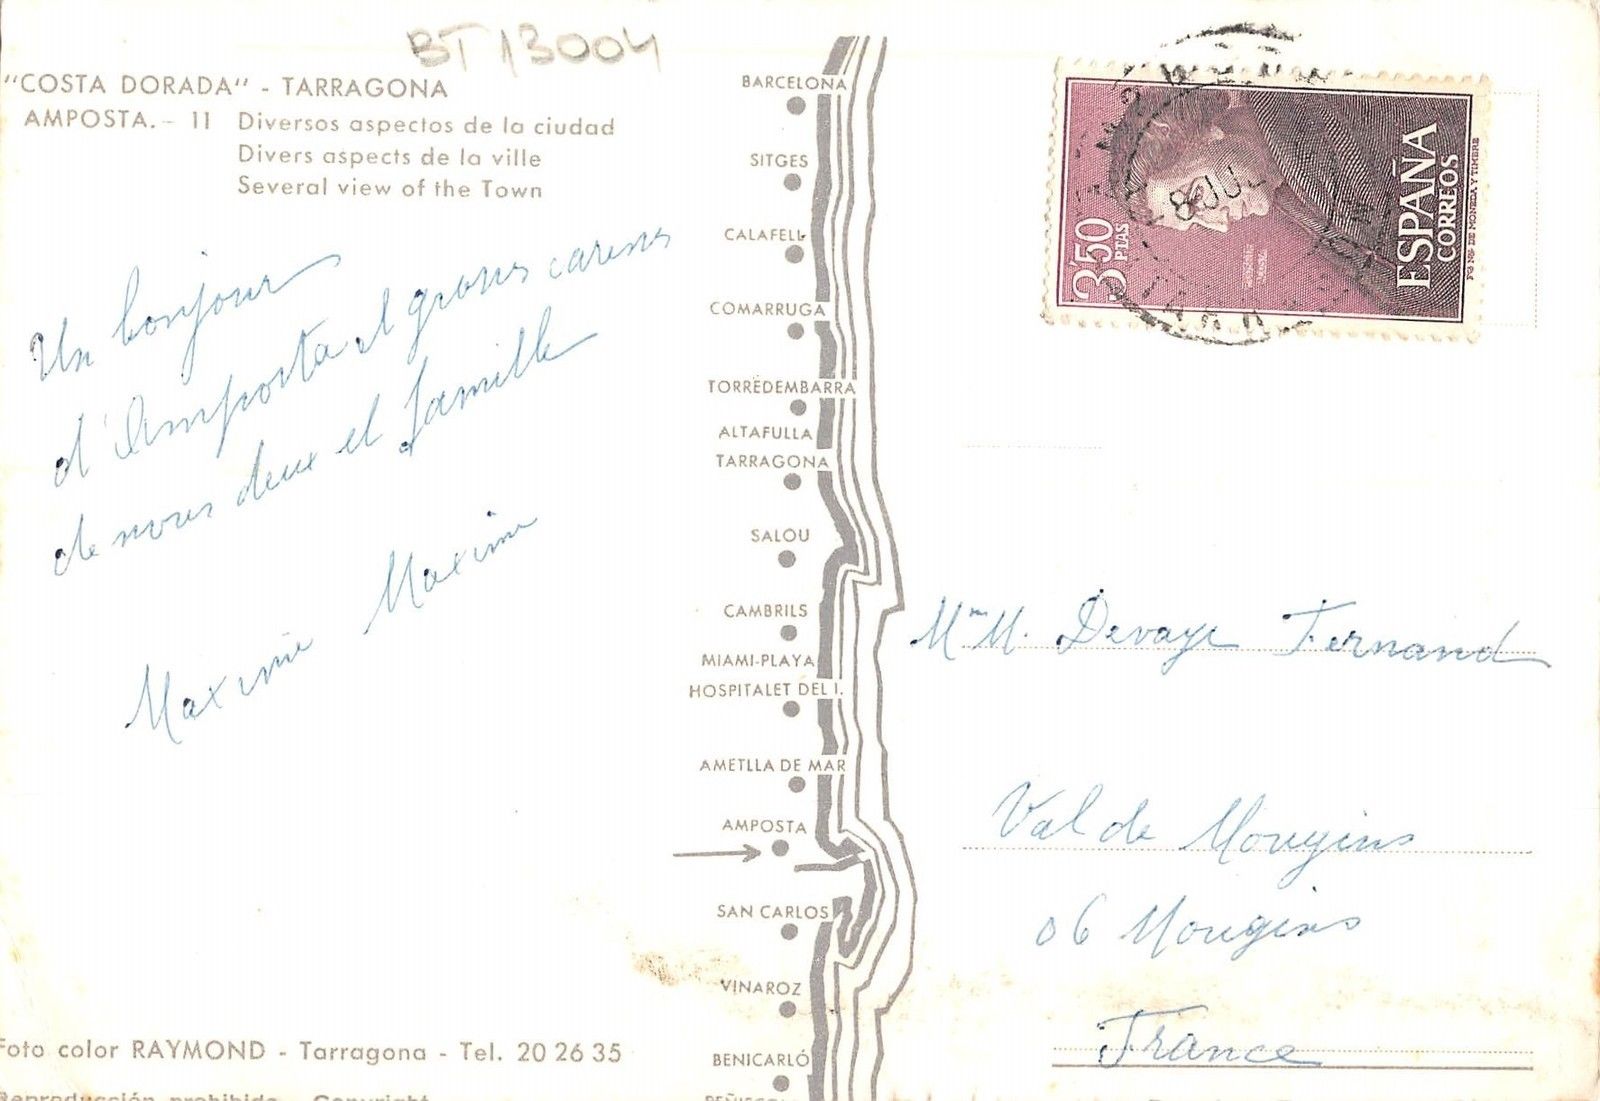 BT 13004
"COSTA DORADA" - TARRAGONA
AMPOSTA. - 11 Diversos aspectos de la ciudad
Divers aspects de la ville
Several view of the Town
Un bonjour
d'Amposta et
de nous deux et famille
Maxime
Maximie
Foto color RAYMOND - Tarragona - Tel. 20 26 35
Reproducción prohibida - Copyright
BARCELONA
SITGES
CALAFELL
COMARRUGA
TORREDEMBARRA
ALTAFULLA
TARRAGONA
SALOU
CAMBRILS
MIAMI-PLAYA
HOSPITALET DEL I.
AMETLLA DE MAR
AMPOSTA
SAN CARLOS
VINAROZ
BENICARLÓ
3'50 PTAS
ESPAÑA
CORREOS
8 JUL
Mme M. Devaye Fernand
Val de Mougins
06 Mougins
France